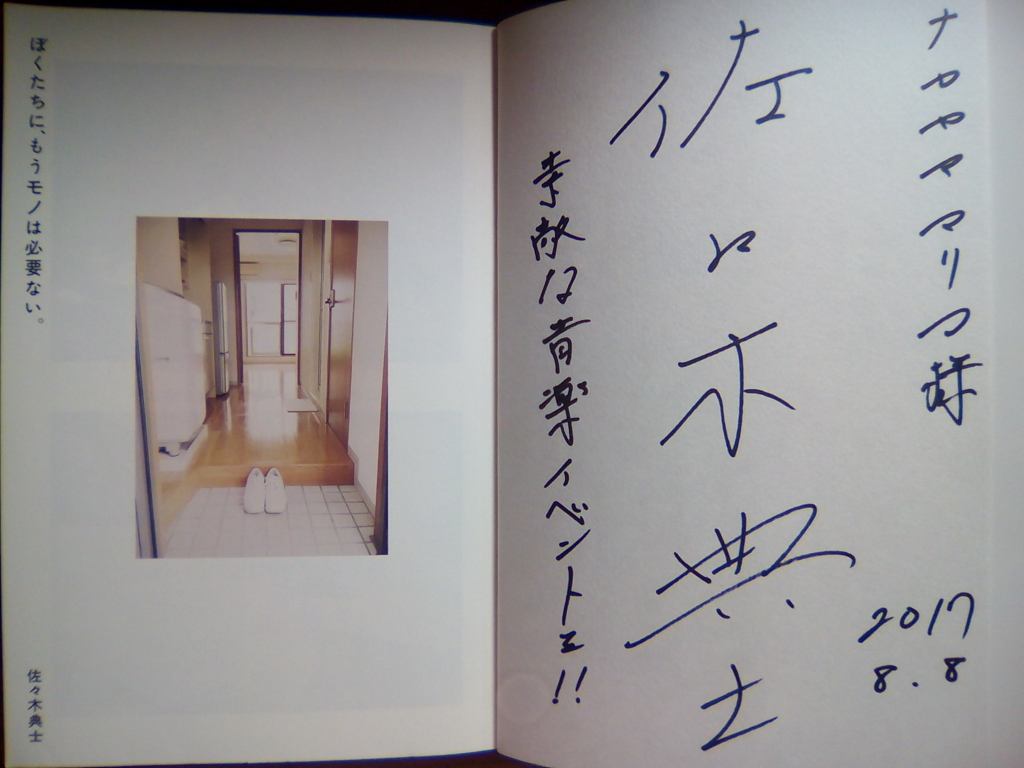 ナカヤママリコ様
2017
8.8
佐々木典士
素敵な音楽イベントを!!
ぼくたちに、もうモノは必要ない。
佐々木典士